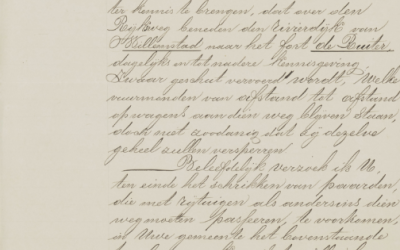 ter kennis te brengen, dat over den
Rijksweg beneden den rivierdijk van
Willemstad naar het fort "de Ruiter"
dagelijks en tot nadere kennisgeving
zwaar geschut vervoerd wordt, welke
vuurmonden van afstand tot afstand
op wagens aan dien weg blijven staan,
doch niet zoodanig dat hij dezelve
geheel zullen versperren
Beleefdelijk verzoek ik U,
ten einde het schrikken van paarden,
die met rijtuigen als anderszins dien
weg moeten passeren, te voorkomen,
in Uwe gemeente het bovenstaande